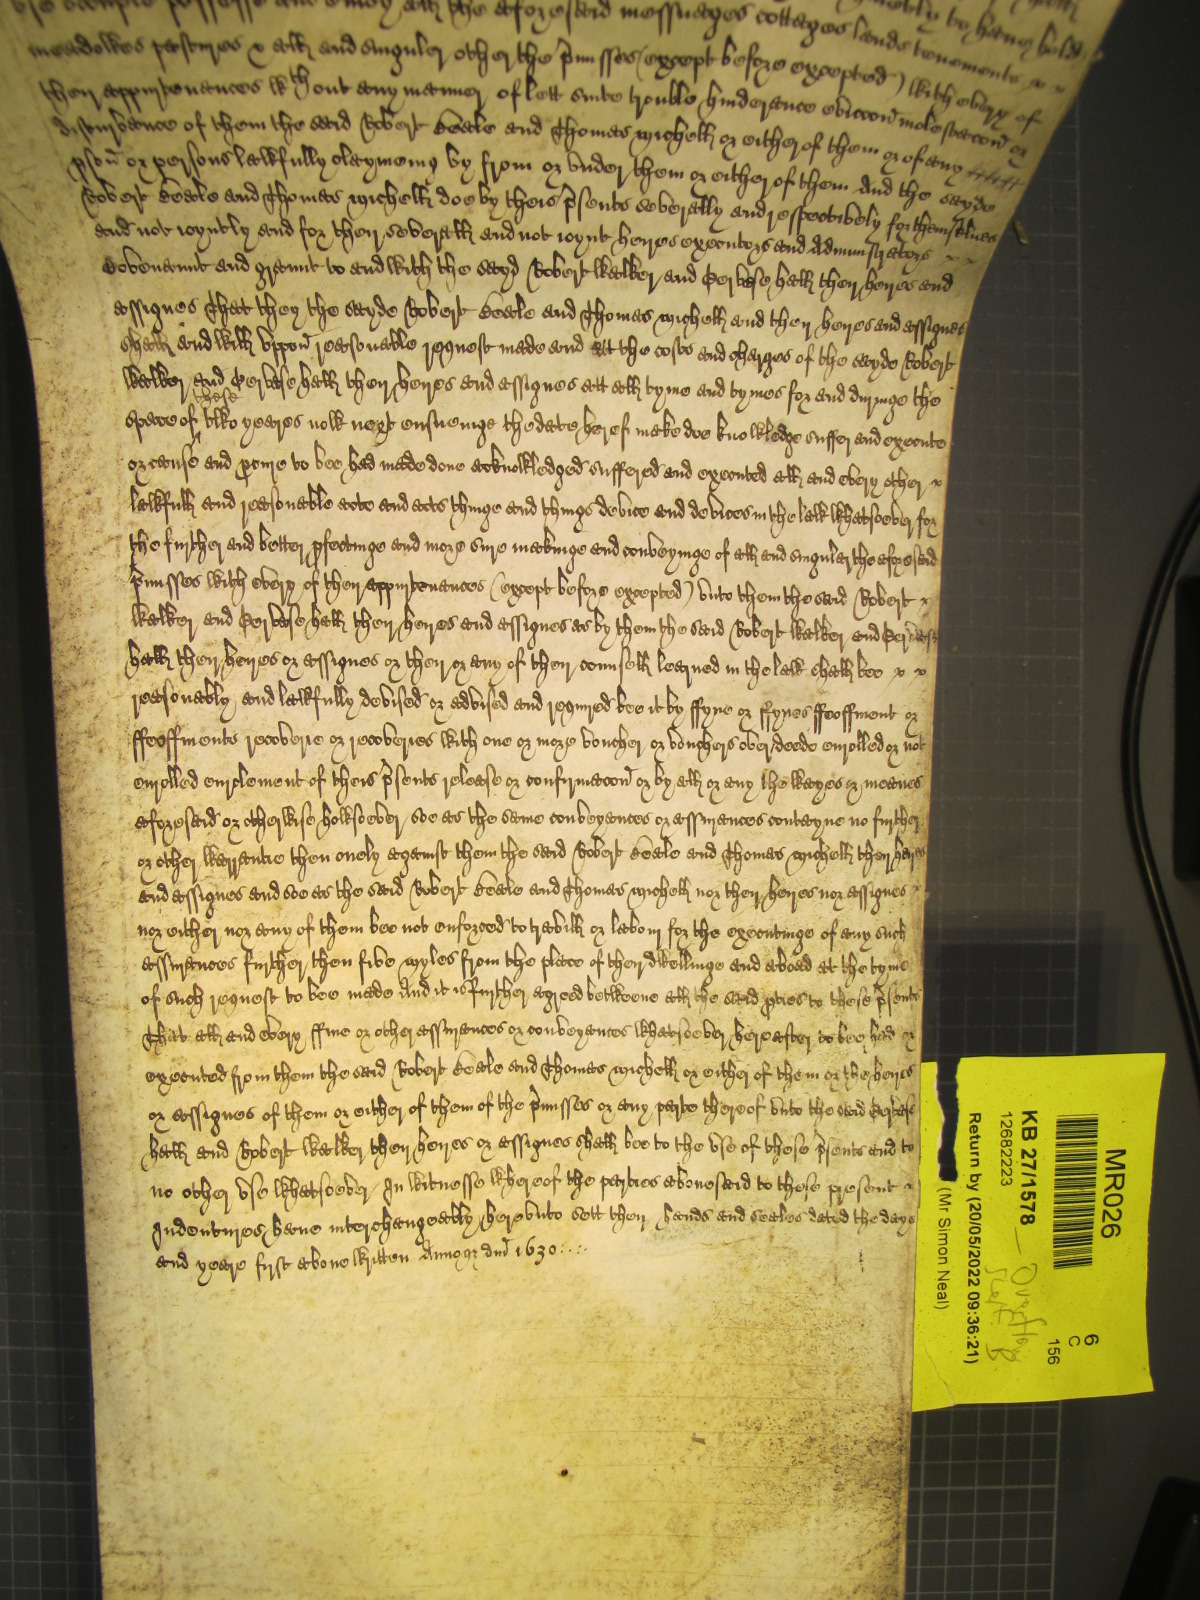 use occupie possesse and enioy all the aforesaid messuages cottages lands tenements
meadowes pastures & all and singuler other the p'misses (except before excepted) with every of
their appurtenances without any manner of lett suite trouble hinderance eviccon molestacon or
disturbance of them the said Robert Beale and Thomas Michell or either of them or of any
pson or persons lawfully claymeing by from or under them or either of them And the sayde
Robert Beale and Thomas Michell doe by theis p'sents severally and respectively for themselves
and not ioyntly and for their severall and not ioynt heires executors and Administrators
Covenannt and graunt to and with the sayd Robert Walker and Pervise Hall their heires and
assignes That they the sayde Robert Beale and Thomas Michell and their heires and assignes
shall and will uppon reasonable request made and att the costs and charges of the sayde Robert
Walker and Pervise Hall their heires and assignes att all tyme and tymes for and duringe the
space of two yeares now next ensueinge the date hereof make doe knowledge suffer and execute
or cause and pcure to bee had made done acknowledged suffered and executed all and every other
lawfull and reasonable acte and acts thinge and things device and devices in the law whatsoever for
the further and better pfectinge and more sure makinge and conveyinge of all and singular the aforesaid
p'misses with every of their appurtenances (except before excepted) unto them the said Robert
Walker and Pervise Hall their heires and assignes as by them the said Robert Walker and Pervise
Hall their heires or assignes or their or any of their counsell learned in the law shall bee
reasonably and lawfully devised or advised and required bee it by ffyne or ffynes ffeoffment or
ffeoffments recoverie or recoveries with one or more voucher or vouchers over deede enrolled or not
enrolled enrolement of theis p'sents release or confirmacon or by all or any the wayes or meanes
aforesaid or otherwise howsoever soe as the same conveyances or assurances contayne no further
or other warrantie then onely against them the said Robert Beale and Thomas Michell their heires
and assignes and soe as the said Robert Beale and Thomas Michell nor their heires nor assignes
nor either nor any of them bee not enforced to travill or labour for the executinge of any such
assurances further then five myles from the place of their dwellinge and aboad at the tyme
of such request to bee made And it is further agreed betweene all the said pties to these p'sents
That all and every ffine or other assurances or conveyances whatsoever hereafter to bee had or
executed from them the said Robert Beale and Thomas Michell or either of them or the heires
or assignes of them or either of them of the p'misses or any parte thereof unto the said Pervise
Hall and Robert Walker their heires or assignes shall bee to the use of these p'sents and to
no other use whatsoever In witnesse whereof the parties abovesaid to these present
Indentures have interchangeably hereunto sett their hands and seales dated the daye
and yeare first above written Annoqz dni 1630
MR026
6
C
156
KB 27/1578
12682223
Return by (20/05/2022 09:36:21)
(Mr Simon Neal)